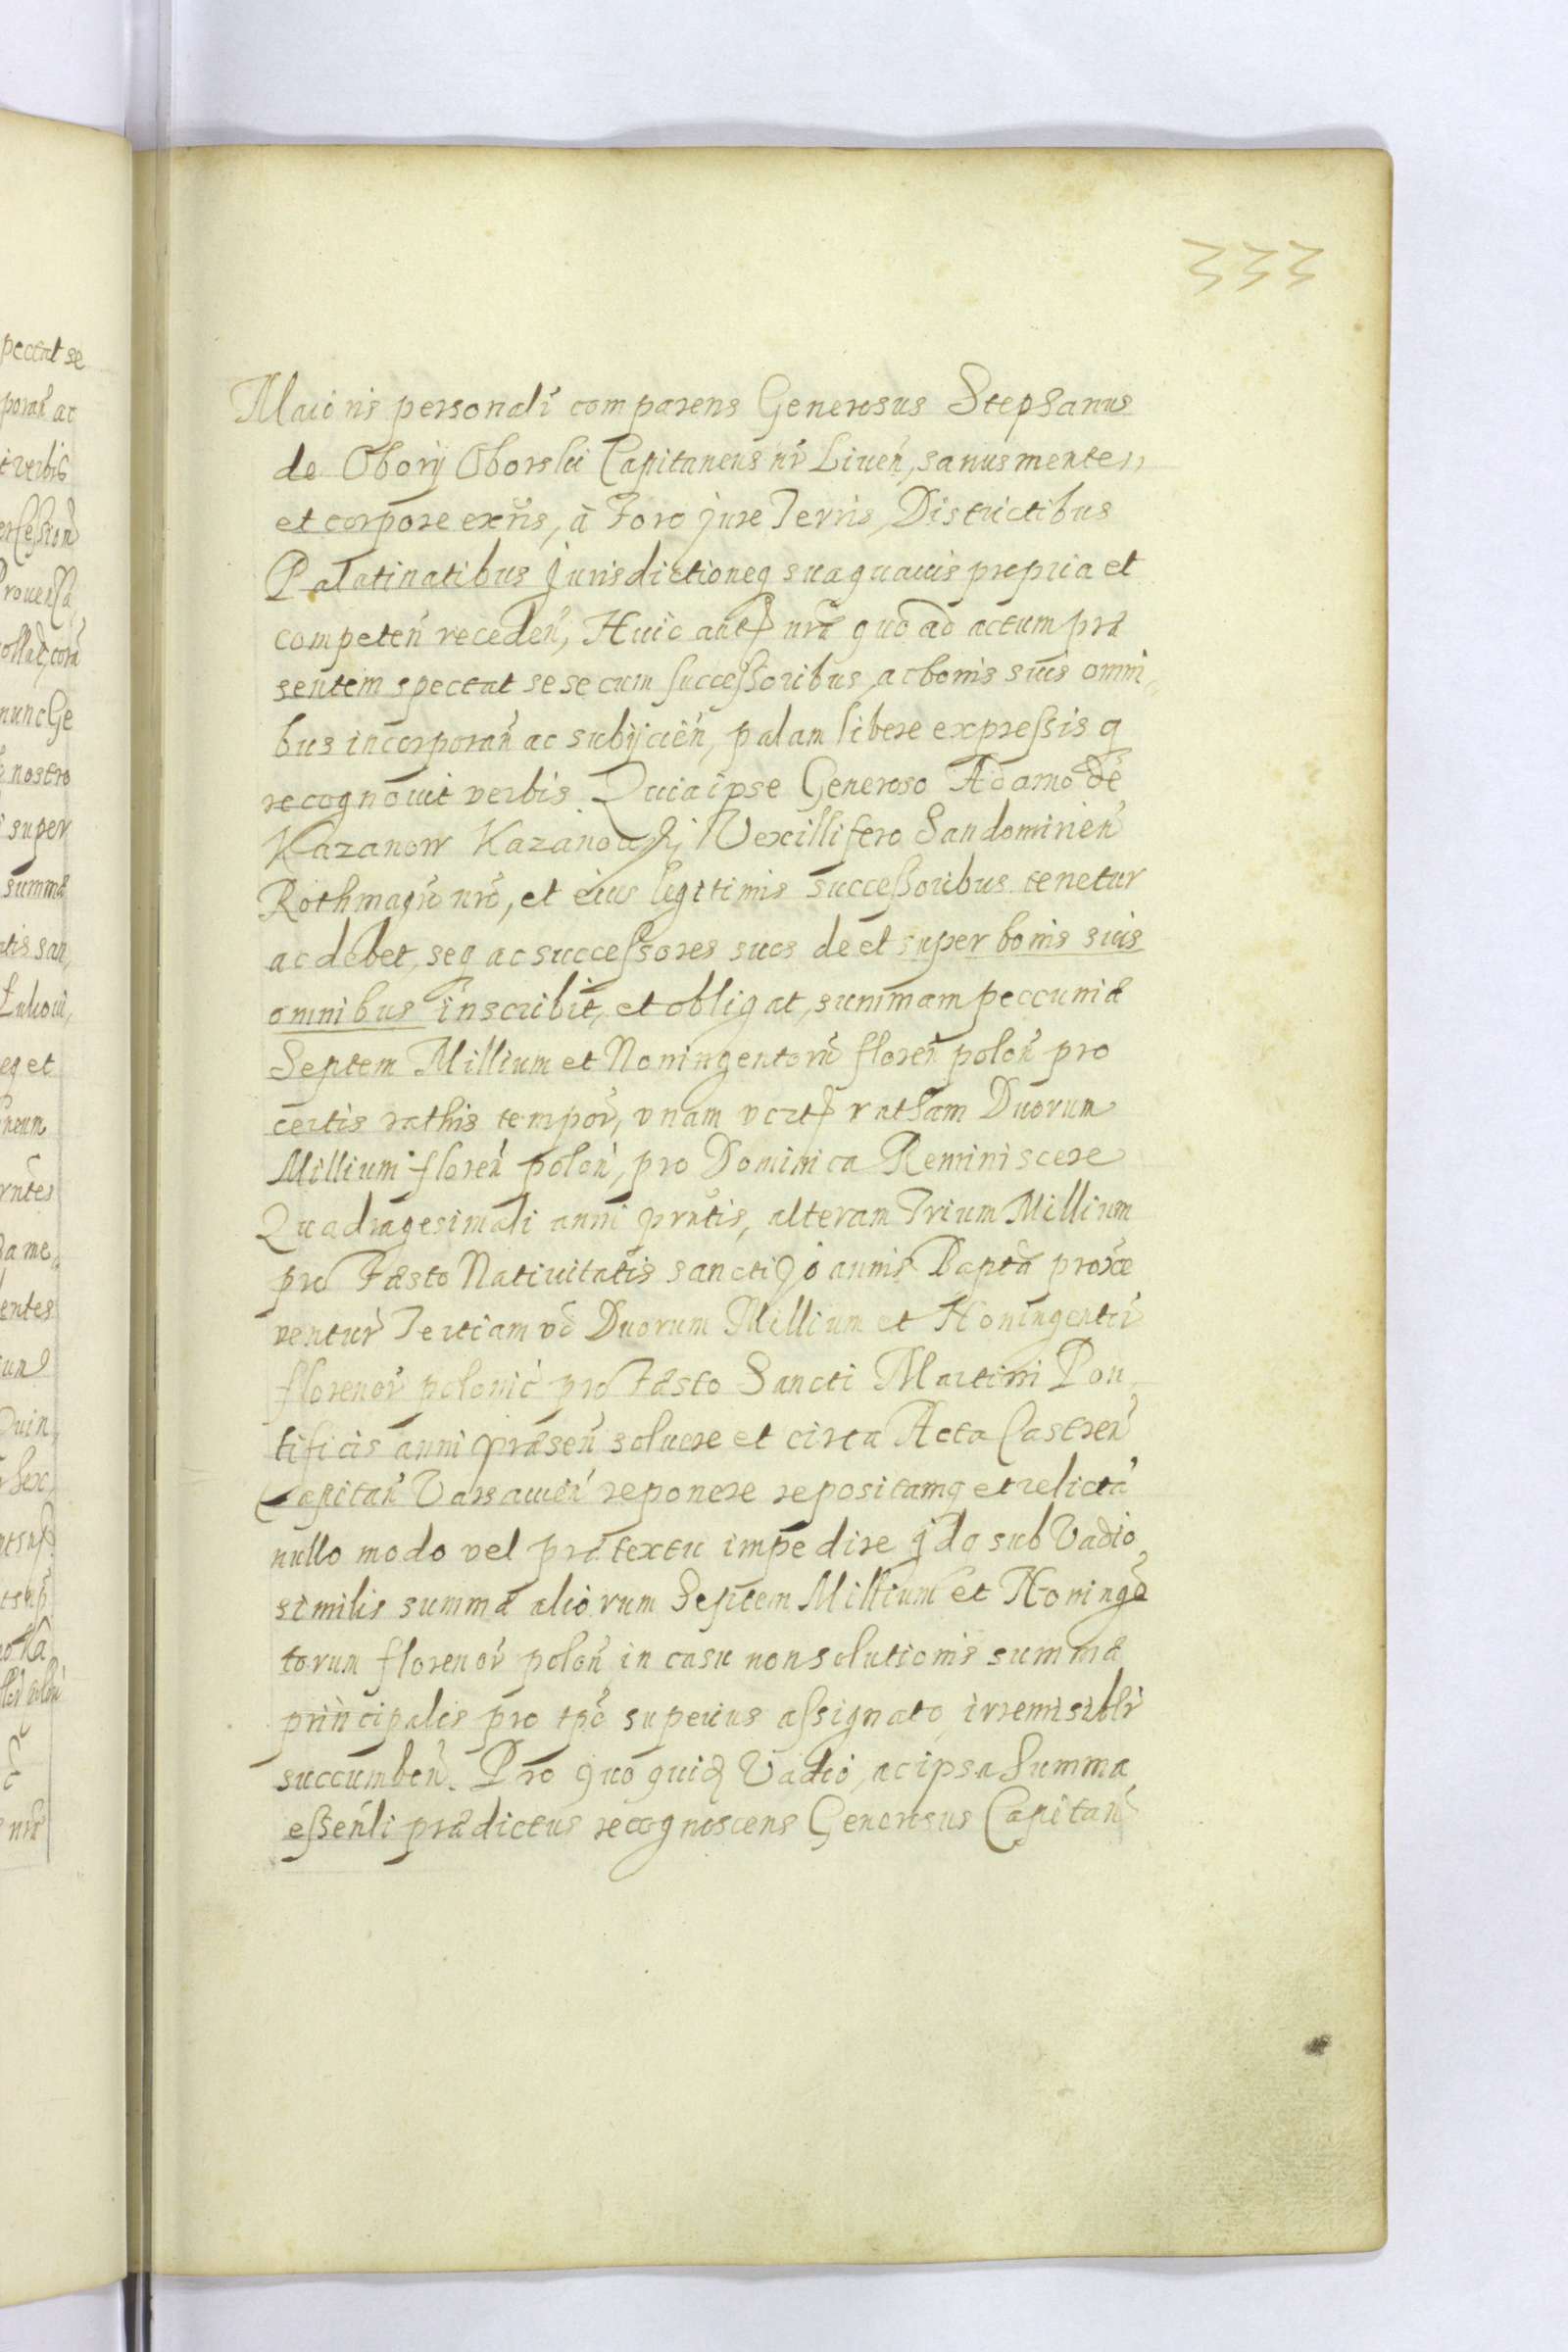 333
Maioris personalr̃ comparens Generosus Stephanus
de Obory Oborski Capitaneus nr̃ Liveñ, sanus mente
et corpore exñs, à Foro jure Terris, Districtibus
Palatinatibus Jurisdictioneq suaquavis propria et
competeñ recedeñ, Huic aute nrã quo ad actum præ
sentem spectat sese cum successoribus, ac bonis suis omni
bus incorporañ ac subijcieñ, palam libere expressis q
recognovit verbis Quia ipse Generoso Adamo de
Kazanow Kazanowski Vexillifero Sandomirieñ
Rothmagrõ nrõ, et eius legitimis successoribus tenetur
ac debet, seq ac successores suos de et super bonis suis
omnibus inscribit, et obligat, summam peccuniæ
Septem Millium et Noningentorũ floreñ poloñ pro
certis rathis tempor̃, vnam vcrt ratham Duorum
Millium floreñ poloñ, pro Dominica Reminiscere
Quadragesimali anni prñtis, alteram Trium Millium
pro Fæsto Nativitatis sancti Joannis Baptã proxæ
ventur̃ Tertiam vó Duorum Millium et Noningentor̃
florenor̃ polonic̃ pro Fæsto Sancti Martini Pon
tificis anni præseñ soluere et circa Acta Castreñ
Capitañ Varsavieñ reponere repositamq et relictã
nullo modo vel prætextu impedire jdq sub Vadio
similis summæ aliorum Septem Millium et Noningẽ
torum florenor̃ poloñ in casu non solutionis summæ
principalis pro tpẽ superius assignato, irremisiblr̃
succumbeñ. Pro quo quid Vadio, ac ipsa Summa
essenli prædictus recognoscens Generosus Capitañ